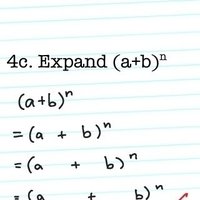 4c. Expand (a+b)ⁿ
(a+b)ⁿ
= (a + b)ⁿ
= (a + b)ⁿ
= (a + b)ⁿ